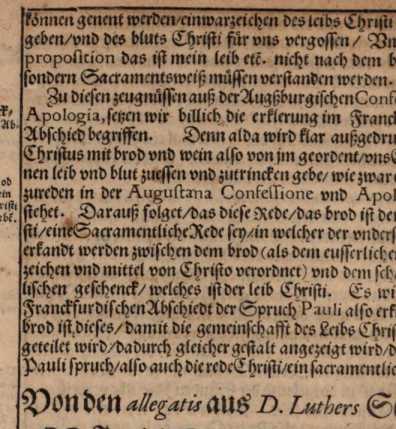 können genent werden/ein warzeichen des leibs Christi
geben/vnd des bluts Christi für vns vergossen / Vn
proposition das ist mein leib etc. nicht nach dem b
sondern Sacramentsweiß müssen verstanden werden.
Zu diesen zeugnüssen auß der Augßburgischen Conf
Apologia, setzen wir billich die erklerung im Franck
Abschied begriffen. Denn alda wird klar außgedru
Christus mit brod vnd wein also von jm geordent/vns
nen leib vnd blut zuessen vnd zutrincken gebe/wie zwar
zureden in der Augustana Confessione vnd Apol
stehet. Darauß folget/das diese Rede/das brod ist der
sti/eine Sacramentliche Rede sey/in welcher der vnders
erkandt werden zwischen dem brod (als dem eusserliche
zeichen vnd mittel von Christo verordnet) vnd dem
lischen geschenck/welches ist der leib Christi. Es wi
Franckfurdischen Abschiedt der Spruch Pauli also erk
brod ist dieses/damit die gemeinschafft des Leibs Chris
geteilet wird/dadurch gleicher gestalt angezeigt wird/d
Pauli spruch/also auch die rede Christi/ein sacramentlic
Von den allegatis aus D. Luthers S